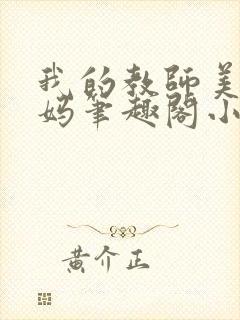 我的教師美
妈筆趣閣小
黄介正